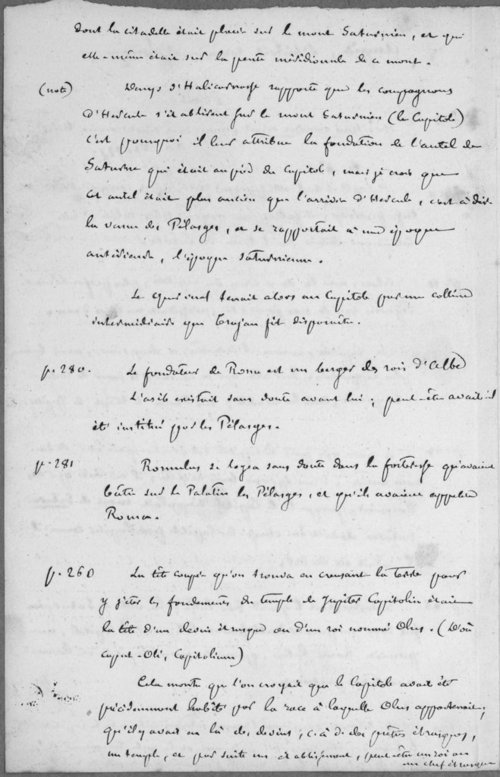 dont la citadelle était placée sur le mont Saturnien, et qui
elle-même était sur la pente méridionale de ce mont.
(note) Denys d'Halicarnasse rapporte que les compagnons
d'Hercule s'établirent sur le mont Saturnien (le Capitole)
C'est pourquoi il leur attribue la fondation de l'autel de
Saturne qui était au pied du Capitole, mais je crois que
cet autel était plus ancien que l'arrivée d'Hercule, c'est à dire
la venue des Pélasges, et se rapportait à une époque
antérieure, l'époque saturnienne.
Le Quirinal tenait alors au Capitole par une colline
intermédiaire que Trajan fit disparaître.
p. 280. Le fondateur de Rome est un berger des rois d'Albe
L'asile existait sans doute avant lui; peut-être avait-il
été institué par les Pélasges.
p. 281 Romulus se logea sans doute dans la forteresse qu'avaient
bâtie sur le Palatin les Pélasges, et qu'ils avaient appelée
Roma.
p. 260 La tête coupée qu'on trouva en creusant la terre pour
y jeter les fondements du temple de Jupiter Capitolin était
la tête d'un devin étrusque ou d'un roi nommé Olus. (D'où
Caput-Oli, Capitolium)
Cela montre que l'on croyait que le Capitole avait été
précédemment habité par la race à laquelle Olus appartenait;
qu'il y avait eu là des devins, c. à d. des prêtres étrusques,
un temple, et par suite un établissement, peut-être un roi ou
un chef étrusque